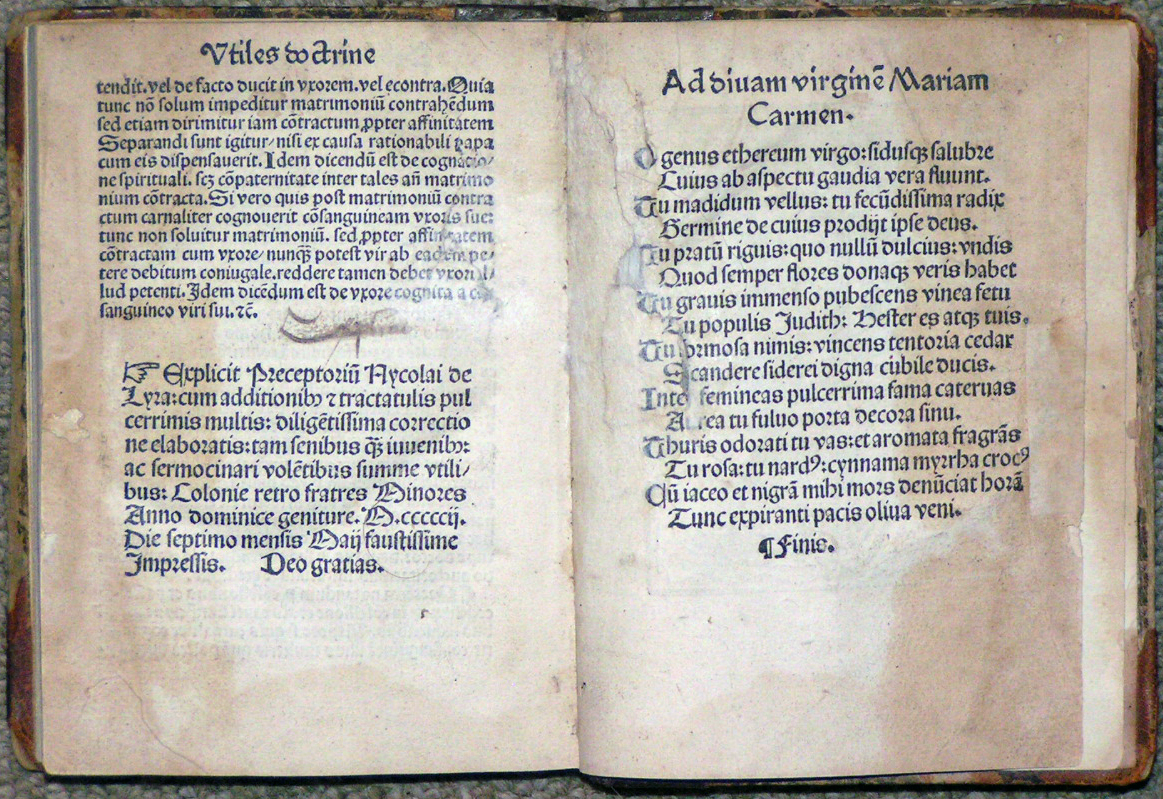 Vtiles doctrine
tendit. vel de facto ducit in vxorem. vel econtra. Quia
tunc nō solum impeditur matrimoniū contrahēdum
sed etiam dirimitur iam cōtractum ꝓpter affinitatem
Separandi sunt igitur/ nisi ex causa rationabili papa
cum eis dispensauerit. Idem dicendū est de cognatio/
ne spirituali. scꝫ cōpaternitate inter tales an̄ matrimo
nium cōtracta. Si vero quis post matrimoniū contra
ctum carnaliter cognouerit cōsanguineam vxoris sue:
tunc non soluitur matrimoniū. sed ꝓpter affinitatem
cōtractam cum vxore/ nunqꝫ potest vir ab eadem pe/
tere debitum coniugale. reddere tamen debet vxori il/
lud petenti. Idem dicēdum est de vxore cognita a cō
sanguineo viri sui. ⁊c̄.
☞ Explicit Preceptoriū Nycolai de
Lyra: cum additionibꝰ ⁊ tractatulis pul
cerrimis multis: diligētissima correctio
ne elaboratis: tam senibus qꝫ iuuenibꝰ:
ac sermocinari volētibus summe vtili/
bus: Colonie retro fratres Minores
Anno dominice geniture. M.cccccij.
Die septimo mensis Maij faustissime
Impressis. Deo gratias.
Ad diuam virginē Mariam
Carmen.
O genus ethereum virgo: sidusqꝫ salubre
Cuius ab aspectu gaudia vera fluunt.
Tu madidum vellus: tu fecūdissima radix
Germine de cuius prodijt ipse deus.
Tu pratū riguis: quo nullū dulcius: vndis
Quod semper flores donaqꝫ veris habet
Tu grauis immenso pubescens vinea fetu
Tu populis Judith: Hester es atqꝫ tuis.
Tu formosa nimis: vincens tentoria cedar
Scandere siderei digna cubile ducis.
Inter femineas pulcerrima fama cateruas
Aurea tu fuluo porta decora sinu.
Thuris odorati tu vas: et aromata fragrās
Tu rosa: tu nardꝰ: cynnama myrrha crocꝰ
Cū iaceo et nigrā mihi mors denūciat horā
Tunc expiranti pacis oliua veni.
¶ Finis.